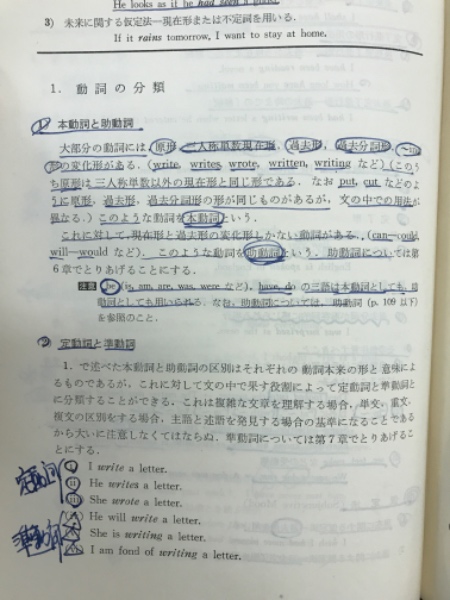 He looks as if he had seen a ghost.
3) 未来に関する仮定法—現在形または不定詞を用いる.
If it rains tomorrow, I want to stay at home.
1. 動詞の分類
1) 本動詞と助動詞
大部分の動詞には, 原形, 三人称単数現在形, 過去形, 過去分詞形, 〜ing
形の変化形がある. (write, writes, wrote, written, writing など) (このう
ち原形は三人称単数以外の現在形と同じ形である. なお put, cut などのよ
うに原形, 過去形, 過去分詞形の形が同じものがあるが, 文の中での用法が
異なる.) このような動詞を本動詞という.
これに対して, 現在形と過去形の変化形しかない動詞がある. (can—could,
will—would など). このような動詞を助動詞という. 助動詞については第
6章でとりあげることにする.
注意 be (is, am, are, was, were など), have, do の三語は本動詞としても, 助
動詞としても用いられる. なお, 助動詞については, 助動詞 (p. 109 以下)
を参照のこと.
2) 定動詞と準動詞
1. で述べた本動詞と助動詞の区別はそれぞれの動詞本来の形と意味によ
るものであるが, これに対して文の中で果す役割によって定動詞と準動詞と
に分類することができる. これは複雑な文章を理解する場合, 単文, 重文,
複文の区別をする場合, 主語と述語を発見する場合の基準になることである
から大いに注意しなくてはならぬ. 準動詞については第7章でとりあげるこ
とにする.
定動詞
(i) I write a letter.
(ii) He writes a letter.
(iii) She wrote a letter.
He will write a letter.
準動詞
She is writing a letter.
I am fond of writing a letter.